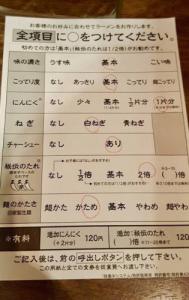 お客様のお好みに合わせてラーメンをお作りします。
全項目に○をつけてください。
初めての方は「基本」(秘伝のたれは1/2倍)がお勧めです。
味の濃さ うす味 基本 こい味
こってり度 なし あっさり 基本 こってり 超こってり
にんにく なし 少々 基本 1/2片分 1片分
ねぎ なし 白ねぎ 青ねぎ
チャーシュー なし あり
秘伝のたれ なし 1/2倍 基本 2倍
麺のかたさ 超かた かため 基本 やわめ 超やわ
※有料 追加にんにく 120円 追加 秘伝のたれ 120円
ご記入後は、前の呼出しボタンを押して下さい。
この用紙と全ての食券を従業員へお渡し下さい。